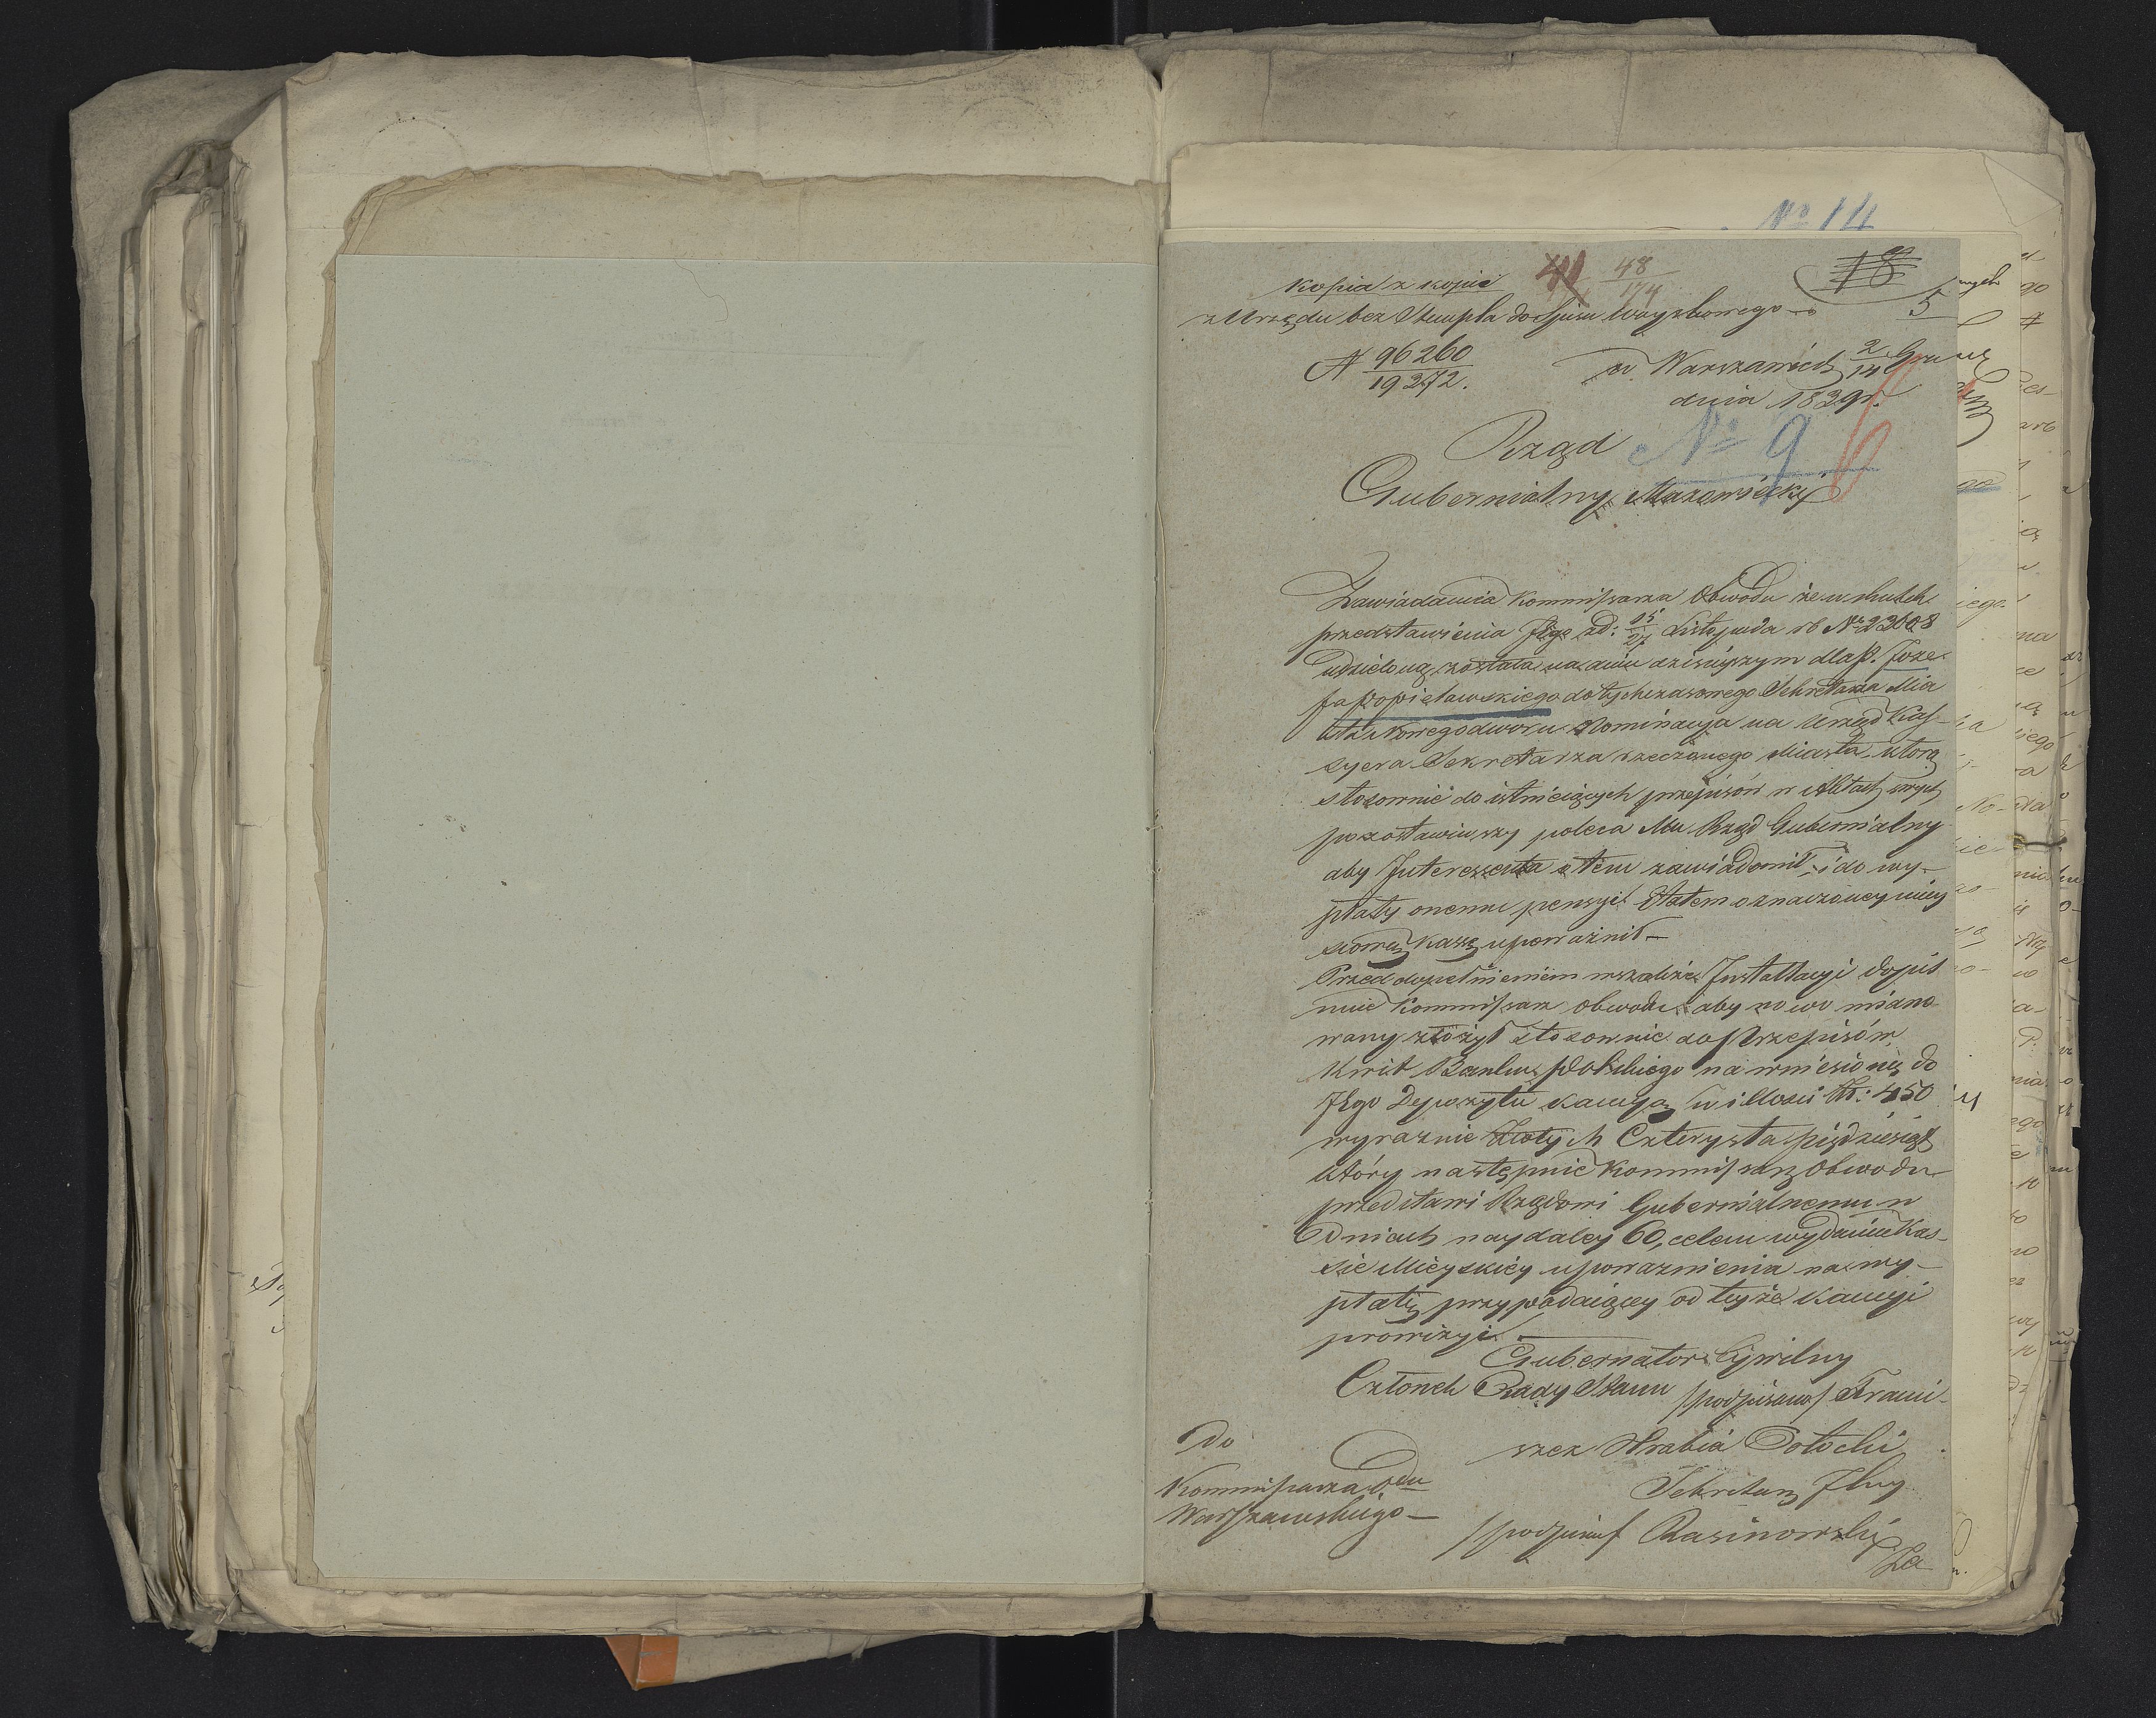 № 14
Kopia z kopii 48 18
174
z Urzędu bez Stempla do Spisu Woyskowego 5
N 96260 w Warszawie d. 2 Gru
19272. 14
dnia 1839 r.
Rząd № 9
Gubernialny Mazowiecki
Zawiadamia Kommissarza Obwodu że w skutek
przedstawienia Jego z d: 15/27 Listopada rb № 22608
udzieloną została na dniu dzisieyszym dla P. Joze
fa Popieławskiego dotychczasowego Sekretarza Mia
sta Nowegodworu Nominacya na Urząd Kas-
syera Sekretarza rzeczonego Miasta, którą
stosownie do istnieiących przepisów w Aktach swych
pozostawiwszy poleca Mu Rząd Gubernialny
aby Interessenta o tém zawiadomił i do wy-
płaty onemu pensyi Etatem oznaczoney miey
scową Kassę upoważnił —
Przed dopełnieniem wszakże Installacyi dopil
nuie Kommissarz Obwodu aby nowo miano
wany złożył stosownie do Przepisów
Kwit Banku Polskiego na wniesioną do
Jego Depozytu kaucyą w illości Zł: 450
wyraznie Złotych Czterysta pięćdziesiąt
który następnie Kommissarz Obwodu
przedstawi Rządowi Gubernialnemu w
Dniach naydaley 60, celem wydania Kas-
sie Mieyskiéy upoważnienia na wy-
płatę przypadaiącey od teyże kaucyi
prowizyi. —
Gubernator Cywilny
Członek Rady Stanu /podpisano/ Franci-
Do szek Hrabia Potocki
Kommissarza Odu Sekretarz Jlny
Warszawskiego — /podpisał/ Rasinowski
Za